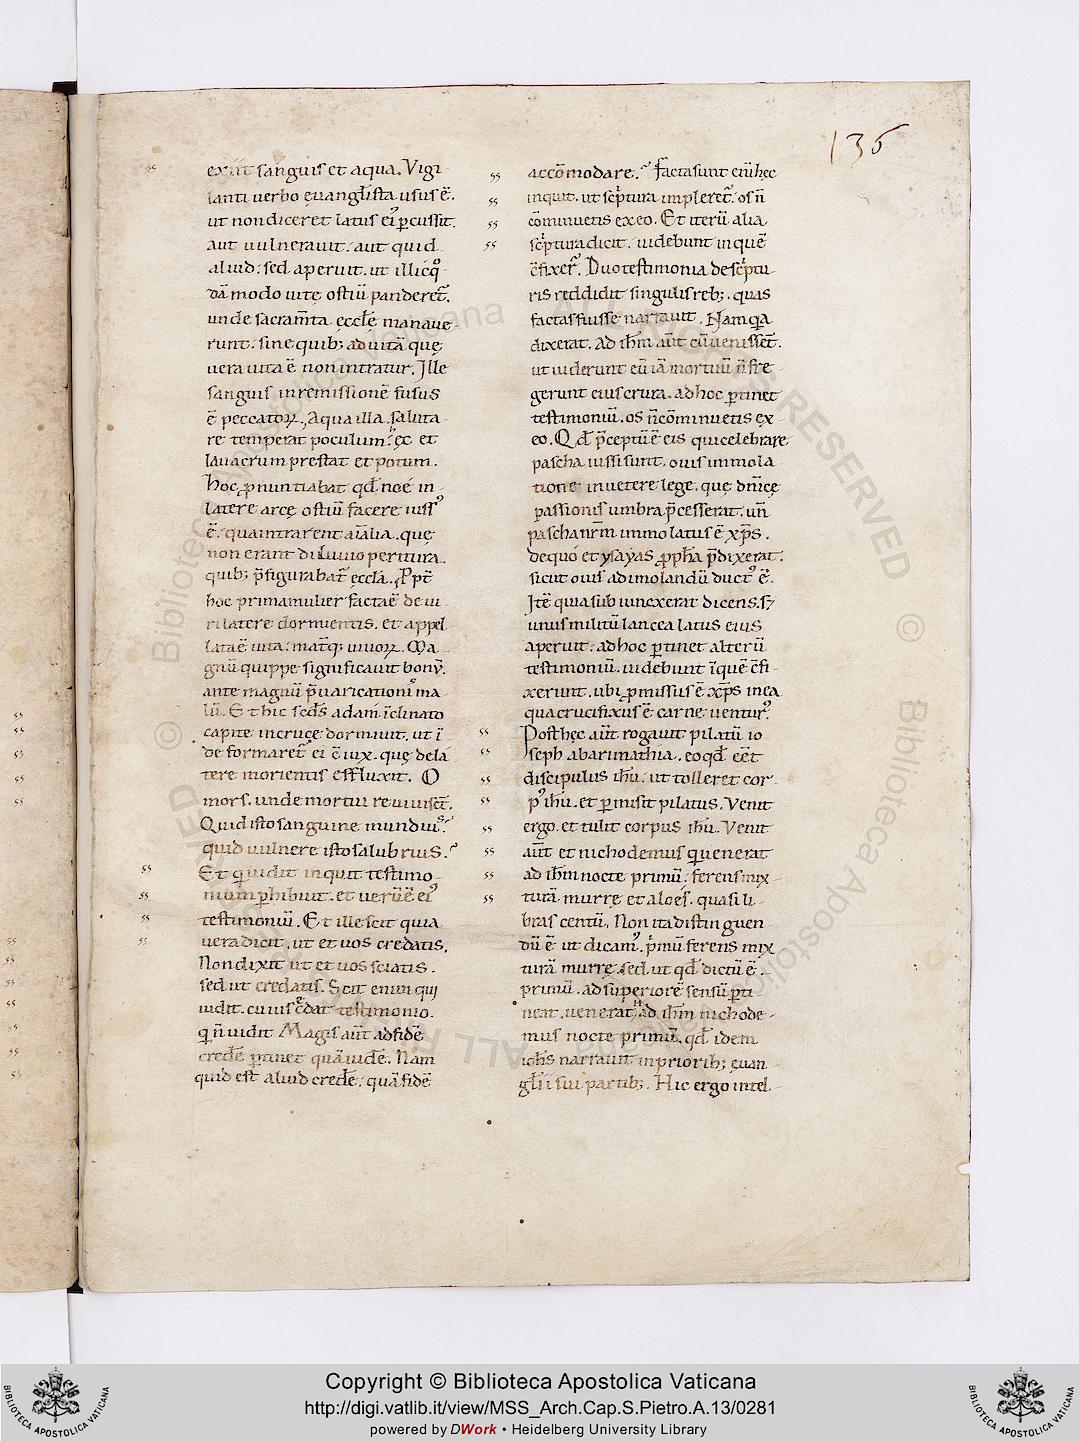 136
exiit sanguis et aqua. Vigi
lanti verbo euanglista usus ē.
ut non diceret latus ei' ꝑcussit.
aut uulnerauit. aut quid
aliud: sed aperuit. ut illic qͦ
dā modo uitę ostiū panderet᷑.
unde sacram̄ta ęccłe manaue
runt. sine quib; ad uitā que
uera uita ē non intratur. Ille
sanguis in remissionē fusus
ē peccatoꝝ. Aqua illa saluta
re temperat poculum. hęc et
lauacrum prestat et potum.
hoc ꝓnuntiabat qđ noe in
latere arcę ostiū facere iuss'
ē. qua intrarent aīalia. quę
non erant diluuio peritura.
quib; p̄figurabat᷑ ęccła. Ppt̄
hoc prima mulier facta ē de ui
ri latere dormientis. et appel
lata ē uita. matq; uiuoꝝ. Ma
gnū quippe significauit bonū.
ante magnū p̄uaricationis ma
lū. Et hic scđs adam īclinato
capite in cruce dormiuit. ut ī
de formaret᷑ ei iux. quę de la
tere morientis effluxit. O
mors. unde mortui reuiuisct̄.
Quid isto sanguine mundius?
quid uulnere isto salubrius?
Et q uidit inquit testimo
nium ꝑhibuit. et uerū ē ei'
testimoniū. Et ille scit quia
uera dicit. ut et uos credatis.
Non dixit ut et uos sciatis.
sed ut credatis. Scit enim qui
uidit. cuius c̄dat testimonio.
q n̄ uidit. Magis aūt ad fidē
credē ꝑtinet quā uidē. Nam
quid est aliud credē. quā fidē
accōmodare? Facta sunt enī hęc
inquit. ut sc̄ptura impleret᷑. os n̄
cōminuetis ex eo. Et iterū alia
sc̄ptura dicit. uidebunt in quē
c̄fixer̄. Duo testimonia de sc̄ptu
ris reddidit singulis reb;. quas
factas fuisse narrauit. Nam qa
dixerat. Ad ihm̄ aūt cū uenissent.
ut uiderunt eū iā mortuū n̄ fre
gerunt eius crura. ad hoc ꝑtinet
testimoniū. os n̄ cōminuetis ex
eo. Qđ p̄ceptū ē eis qui celebrare
pascha iussi sunt. ouis immola
tione in uetere lege. quę dn̄icę
passionis umbra p̄cesserat. un̄
pascha nr̄m immolatus ē xp̄s.
de quo et ysayas ꝓpha p̄dixerat.
sicut ouis ad imolandū duct' ē.
Itē quia subiunxerat dicens. s;
unus militū lancea latus eius
aperuit: ad hoc ꝑtinet alterū
testimoniū. uidebunt ī quē c̄fi
xerunt. ubi ꝓmissus ē xp̄s in ea
qua crucifixus ē carne uentur'.
Post hec aūt rogauit pilatū io
seph ab arimathia. eo qđ eēt
discipulus ihū. ut tolleret cor
p' ihū. et ꝑmisit pilatus. Venit
ergo. et tulit corpus ihū. Venit
aūt et nichodemus q uenerat
ad ihm̄ nocte primū. ferens mix
turā murrę et aloes. quasi li
bras centū. Non ita distinguen
dū ē ut dicam'. p̄mū ferens mix
turā murrę. sed ut qđ dictū ē.
primū. ad superiorē sensū ꝑti
neat. uenerat ad ihm̄ nichode
mus nocte primū. qđ idem
iohs̄ narrauit in priorib; euan
glīi sui partib;. Hic ergo intel
Copyright © Biblioteca Apostolica Vaticana
http://digi.vatlib.it/view/MSS_Arch.Cap.S.Pietro.A.13/0281
powered by DWork • Heidelberg University Library